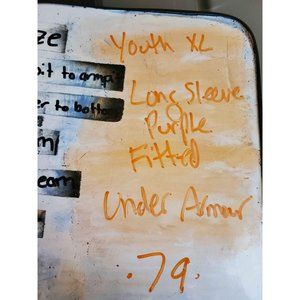 ze
Youth XL
it to armpi
Long Sleeve
er to bottom
Purple
Fitted
eam
Under Armour
.79.